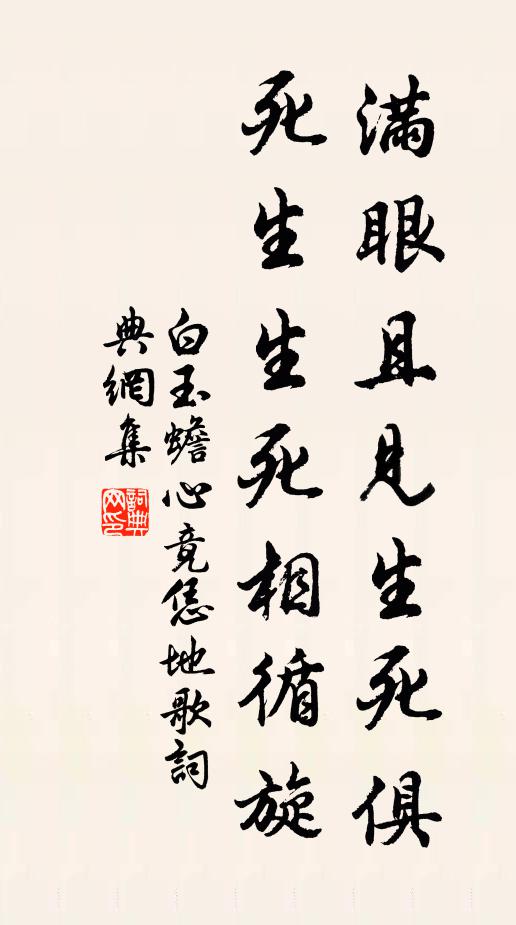 滿眼且見生死俱
死生生死相循旋
白玉蟾心竟恁地歌詞
典網集
詞典
网印